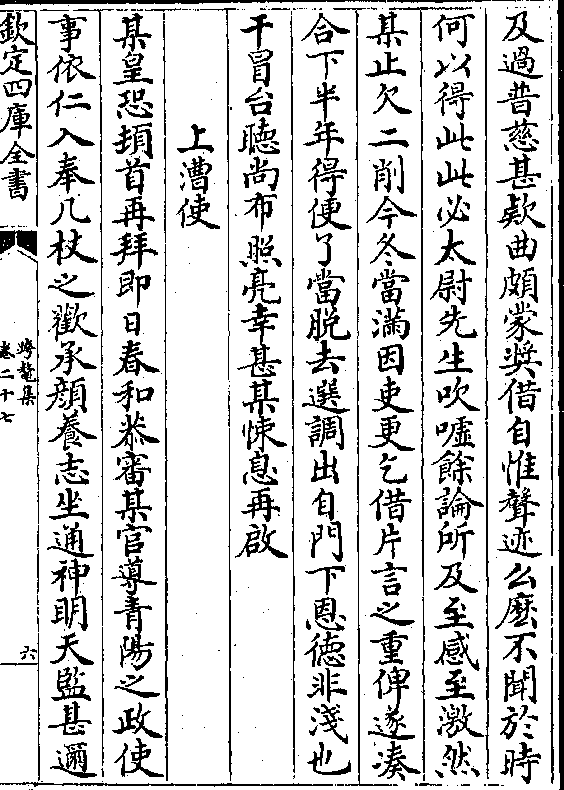 及過普慈甚欵曲頗蒙奬借自惟聲迹么麽不聞於時
何以得此此必太尉先生吹噓餘論所及至感至激然
某止欠二削今冬當滿因吏更乞借片言之重俾遂湊
合下半年得便了當脱去選調出自門下恩德非淺也
干冒台聽尚布照亮幸甚某悚息再啟
上漕使
某皇恐頓首再拜即日春和恭審某官導青陽之政使
事依仁入奉几杖之歡承顔養志坐通神明天監甚邇
欽定四庫全書
跨鼇集
卷二十七
六